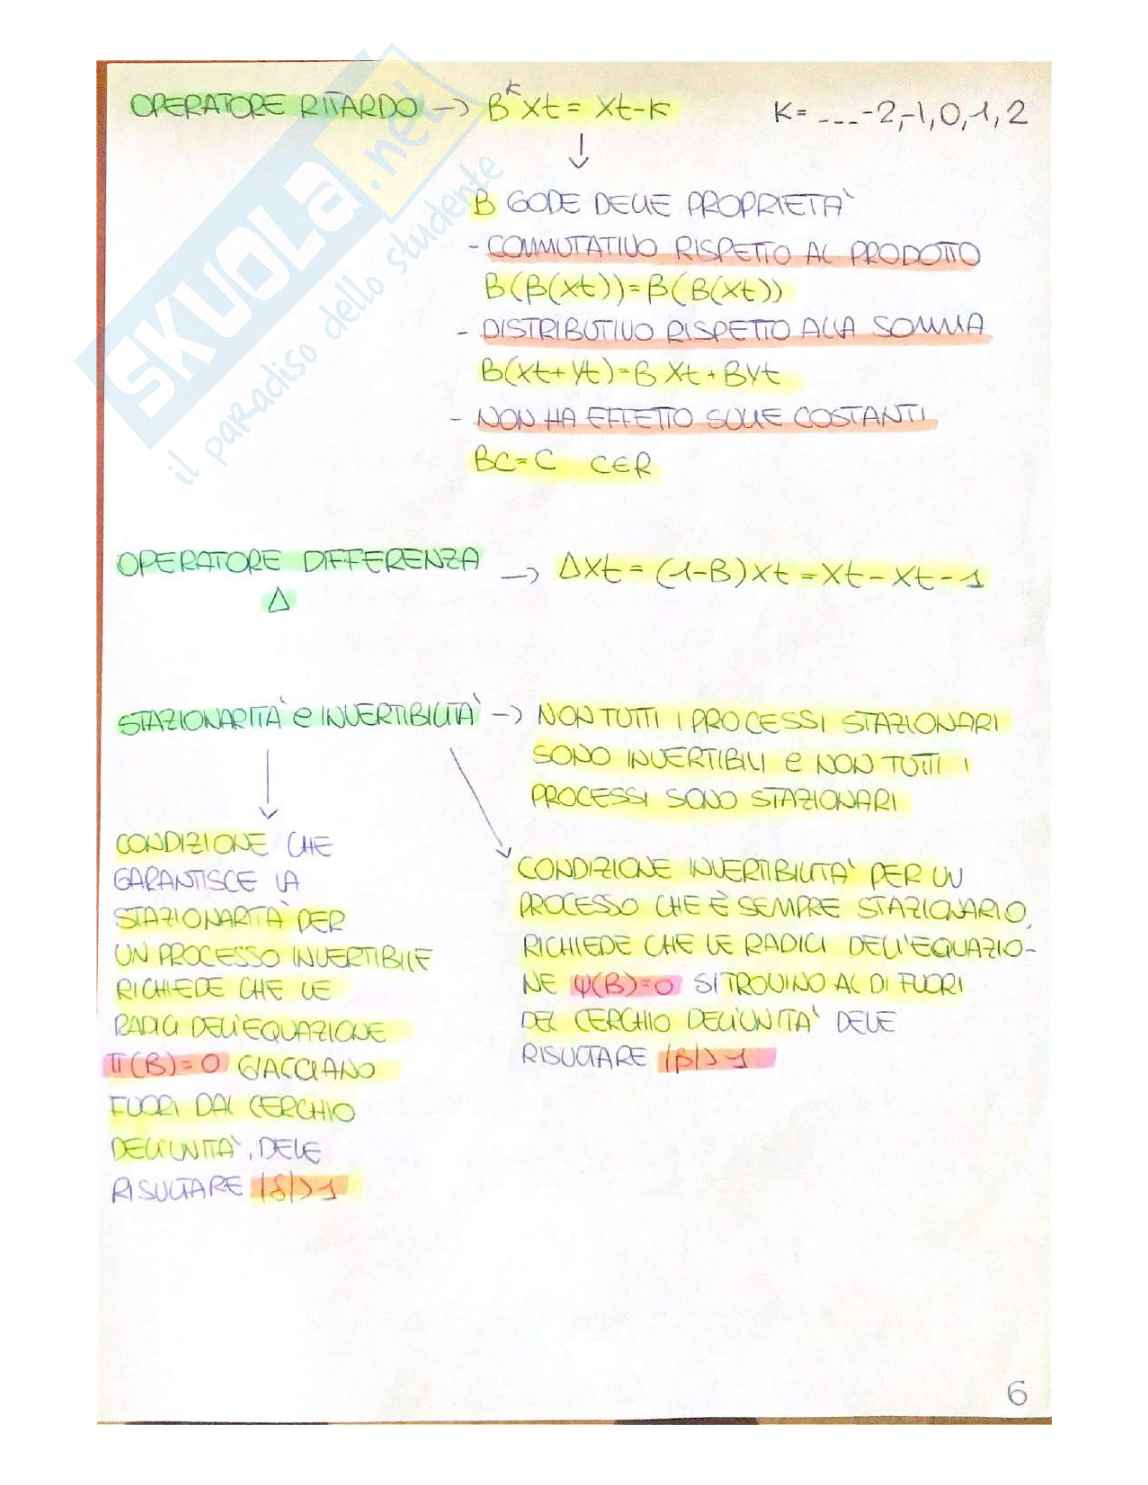 OPERATORE RITARDO -> B^k Xt = Xt-k K= ----2,-1,0,1,2
B GODE DELLE PROPRIETÀ
- COMMUTATIVO RISPETTO AL PRODOTTO
B(B(Xt))=B(B(Xt))
- DISTRIBUTIVO RISPETTO ALLA SOMMA
B(Xt+Yt)=B Xt+BYt
- NON HA EFFETTO SULLE COSTANTI
BC=C C∈R
OPERATORE DIFFERENZA -> ΔXt = (1-B)Xt = Xt-Xt-1
Δ
STAZIONARITÀ e INVERTIBILITÀ -> NON TUTTI I PROCESSI STAZIONARI
SONO INVERTIBILI e NON TUTTI I
PROCESSI SONO STAZIONARI
CONDIZIONE CHE
GARANTISCE LA
STAZIONARTÀ PER
UN PROCESSO INVERTIBILE
RICHIEDE CHE LE
RADICI DELL'EQUAZIONE
π(B)=0 GIACCIANO
FUORI DAL CERCHIO
DELL'UNITÀ, DEVE
RISULTARE |δ|>1
CONDIZIONE INVERTIBILITÀ PER UN
PROCESSO CHE È SEMPRE STAZIONARIO,
RICHIEDE CHE LE RADICI DELL'EQUAZIO-
NE ψ(B)=0 SI TROVINO AL DI FUORI
DEL CERCHIO DELL'UNITÀ DEVE
RISULTARE |β|>1
6
SKUOLA.net
il paradiso dello studente